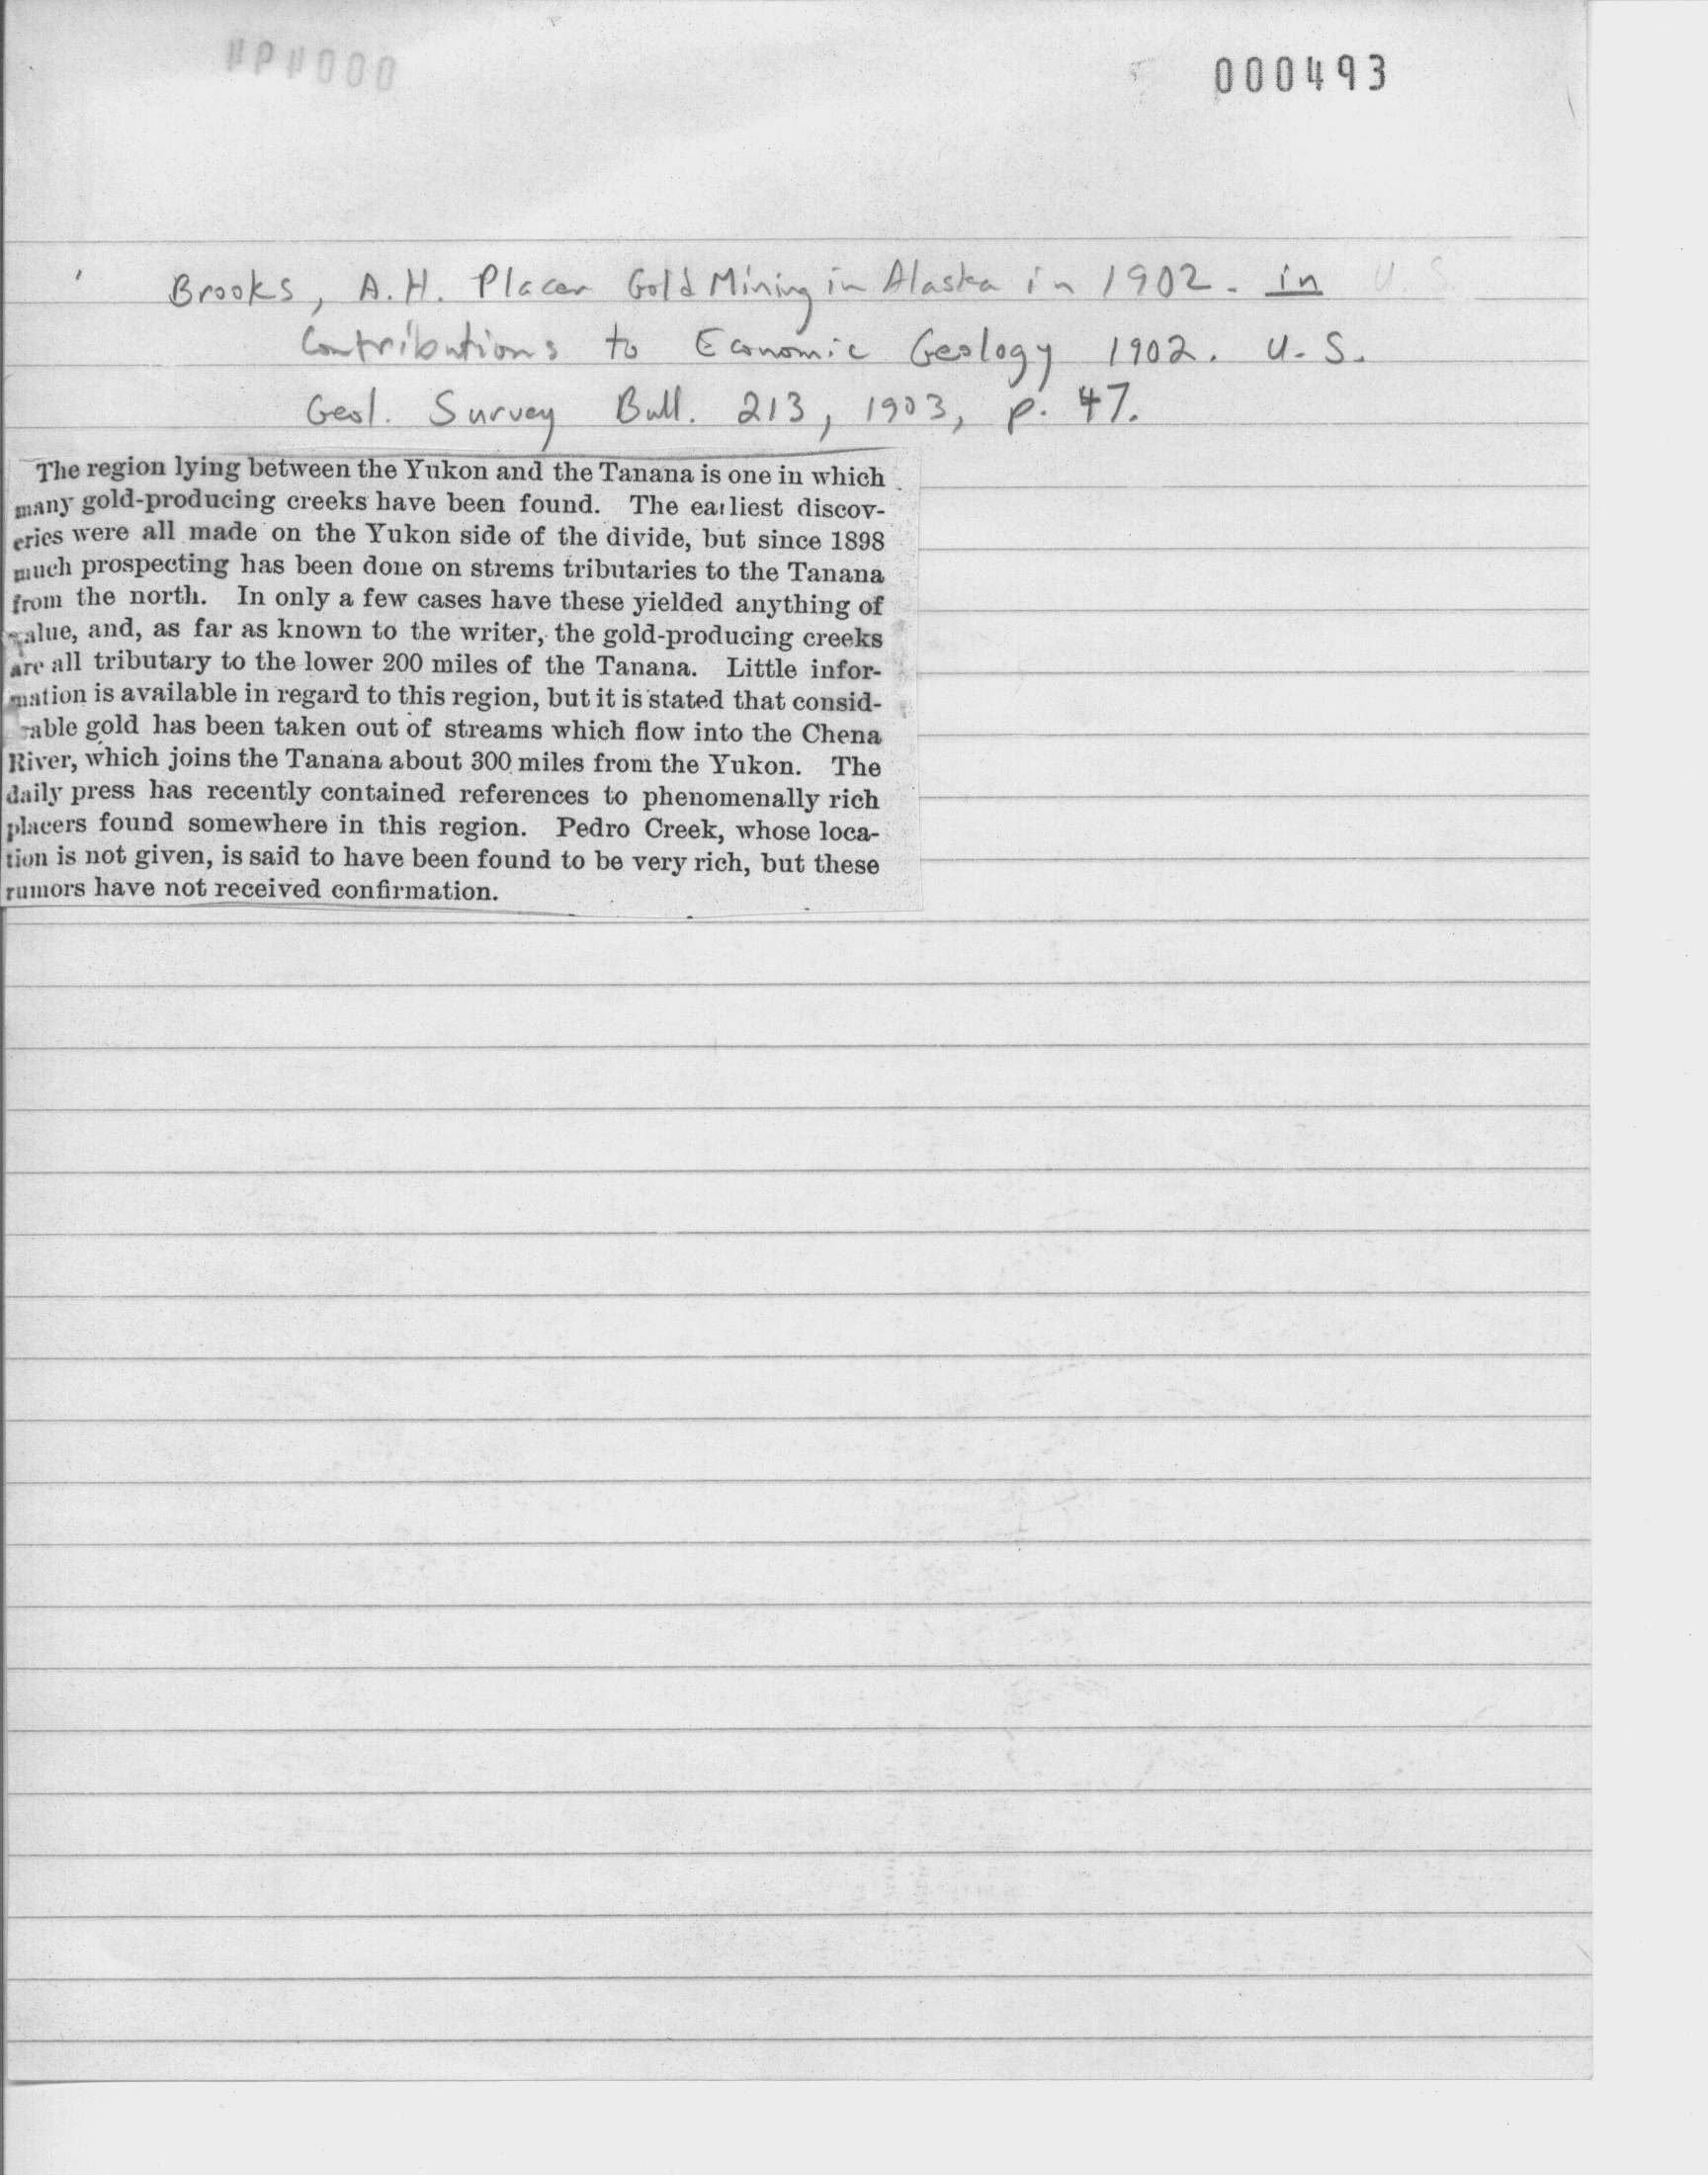 000493
Brooks, A.H. Placer Gold Mining in Alaska in 1902. in U.S.
Contributions to Economic Geology 1902. U.S.
Geol. Survey Bull. 213, 1903, p. 47.
The region lying between the Yukon and the Tanana is one in which
many gold-producing creeks have been found. The earliest discov-
eries were all made on the Yukon side of the divide, but since 1898
much prospecting has been done on strems tributaries to the Tanana
from the north. In only a few cases have these yielded anything of
value, and, as far as known to the writer, the gold-producing creeks
are all tributary to the lower 200 miles of the Tanana. Little infor-
mation is available in regard to this region, but it is stated that consid-
rable gold has been taken out of streams which flow into the Chena
River, which joins the Tanana about 300 miles from the Yukon. The
daily press has recently contained references to phenomenally rich
placers found somewhere in this region. Pedro Creek, whose loca-
tion is not given, is said to have been found to be very rich, but these
rumors have not received confirmation.